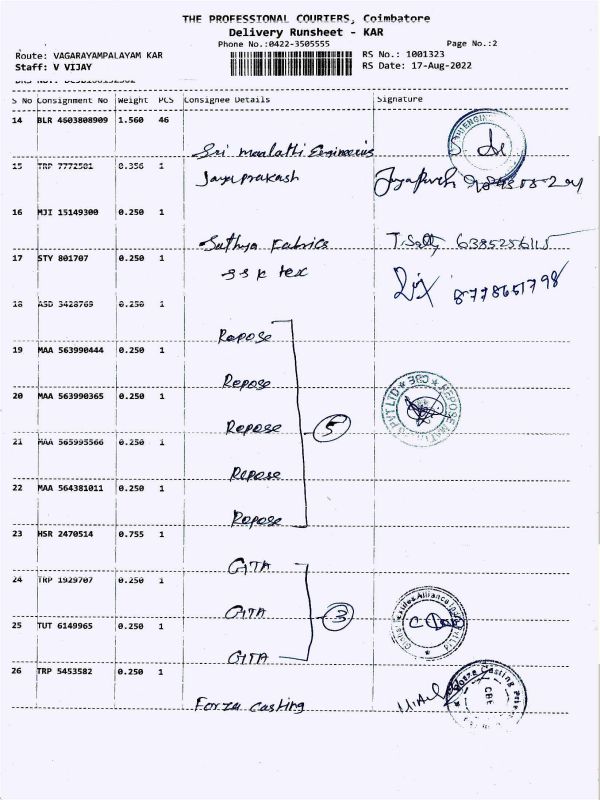 THE PROFESSIONAL COURIERS, Coimbatore
Delivery Runsheet - KAR
Phone No.:0422-3505555 Page No.:2
Route: VAGARAYAMPALAYAM KAR RS No.: 1001323
Staff: V VIJAY RS Date: 17-Aug-2022
S No Consignment No Weight PCS Consignee Details Signature
14 BLR 4603808909 1.560 46
Sri Maalathi Engineering
15 TRP 7772501 0.356 1
Jayaprakash
16 MJI 15149300 0.250 1
Sathya Fabrics 6385256115
17 STY 801707 0.250 1
SSK tex 8778651798
18 ASD 3428769 0.250 1
Repose
19 MAA 563990444 0.250 1
Repose
20 MAA 563990365 0.250 1
Repose 5
21 MAA 565995566 0.250 1
Repose
22 MAA 564381011 0.250 1
Repose
23 HSR 2470514 0.755 1
GITA
24 TRP 1929707 0.250 1
GITA 3
25 TUT 6149965 0.250 1
GITA
26 TRP 5453582 0.250 1
Forza Casting